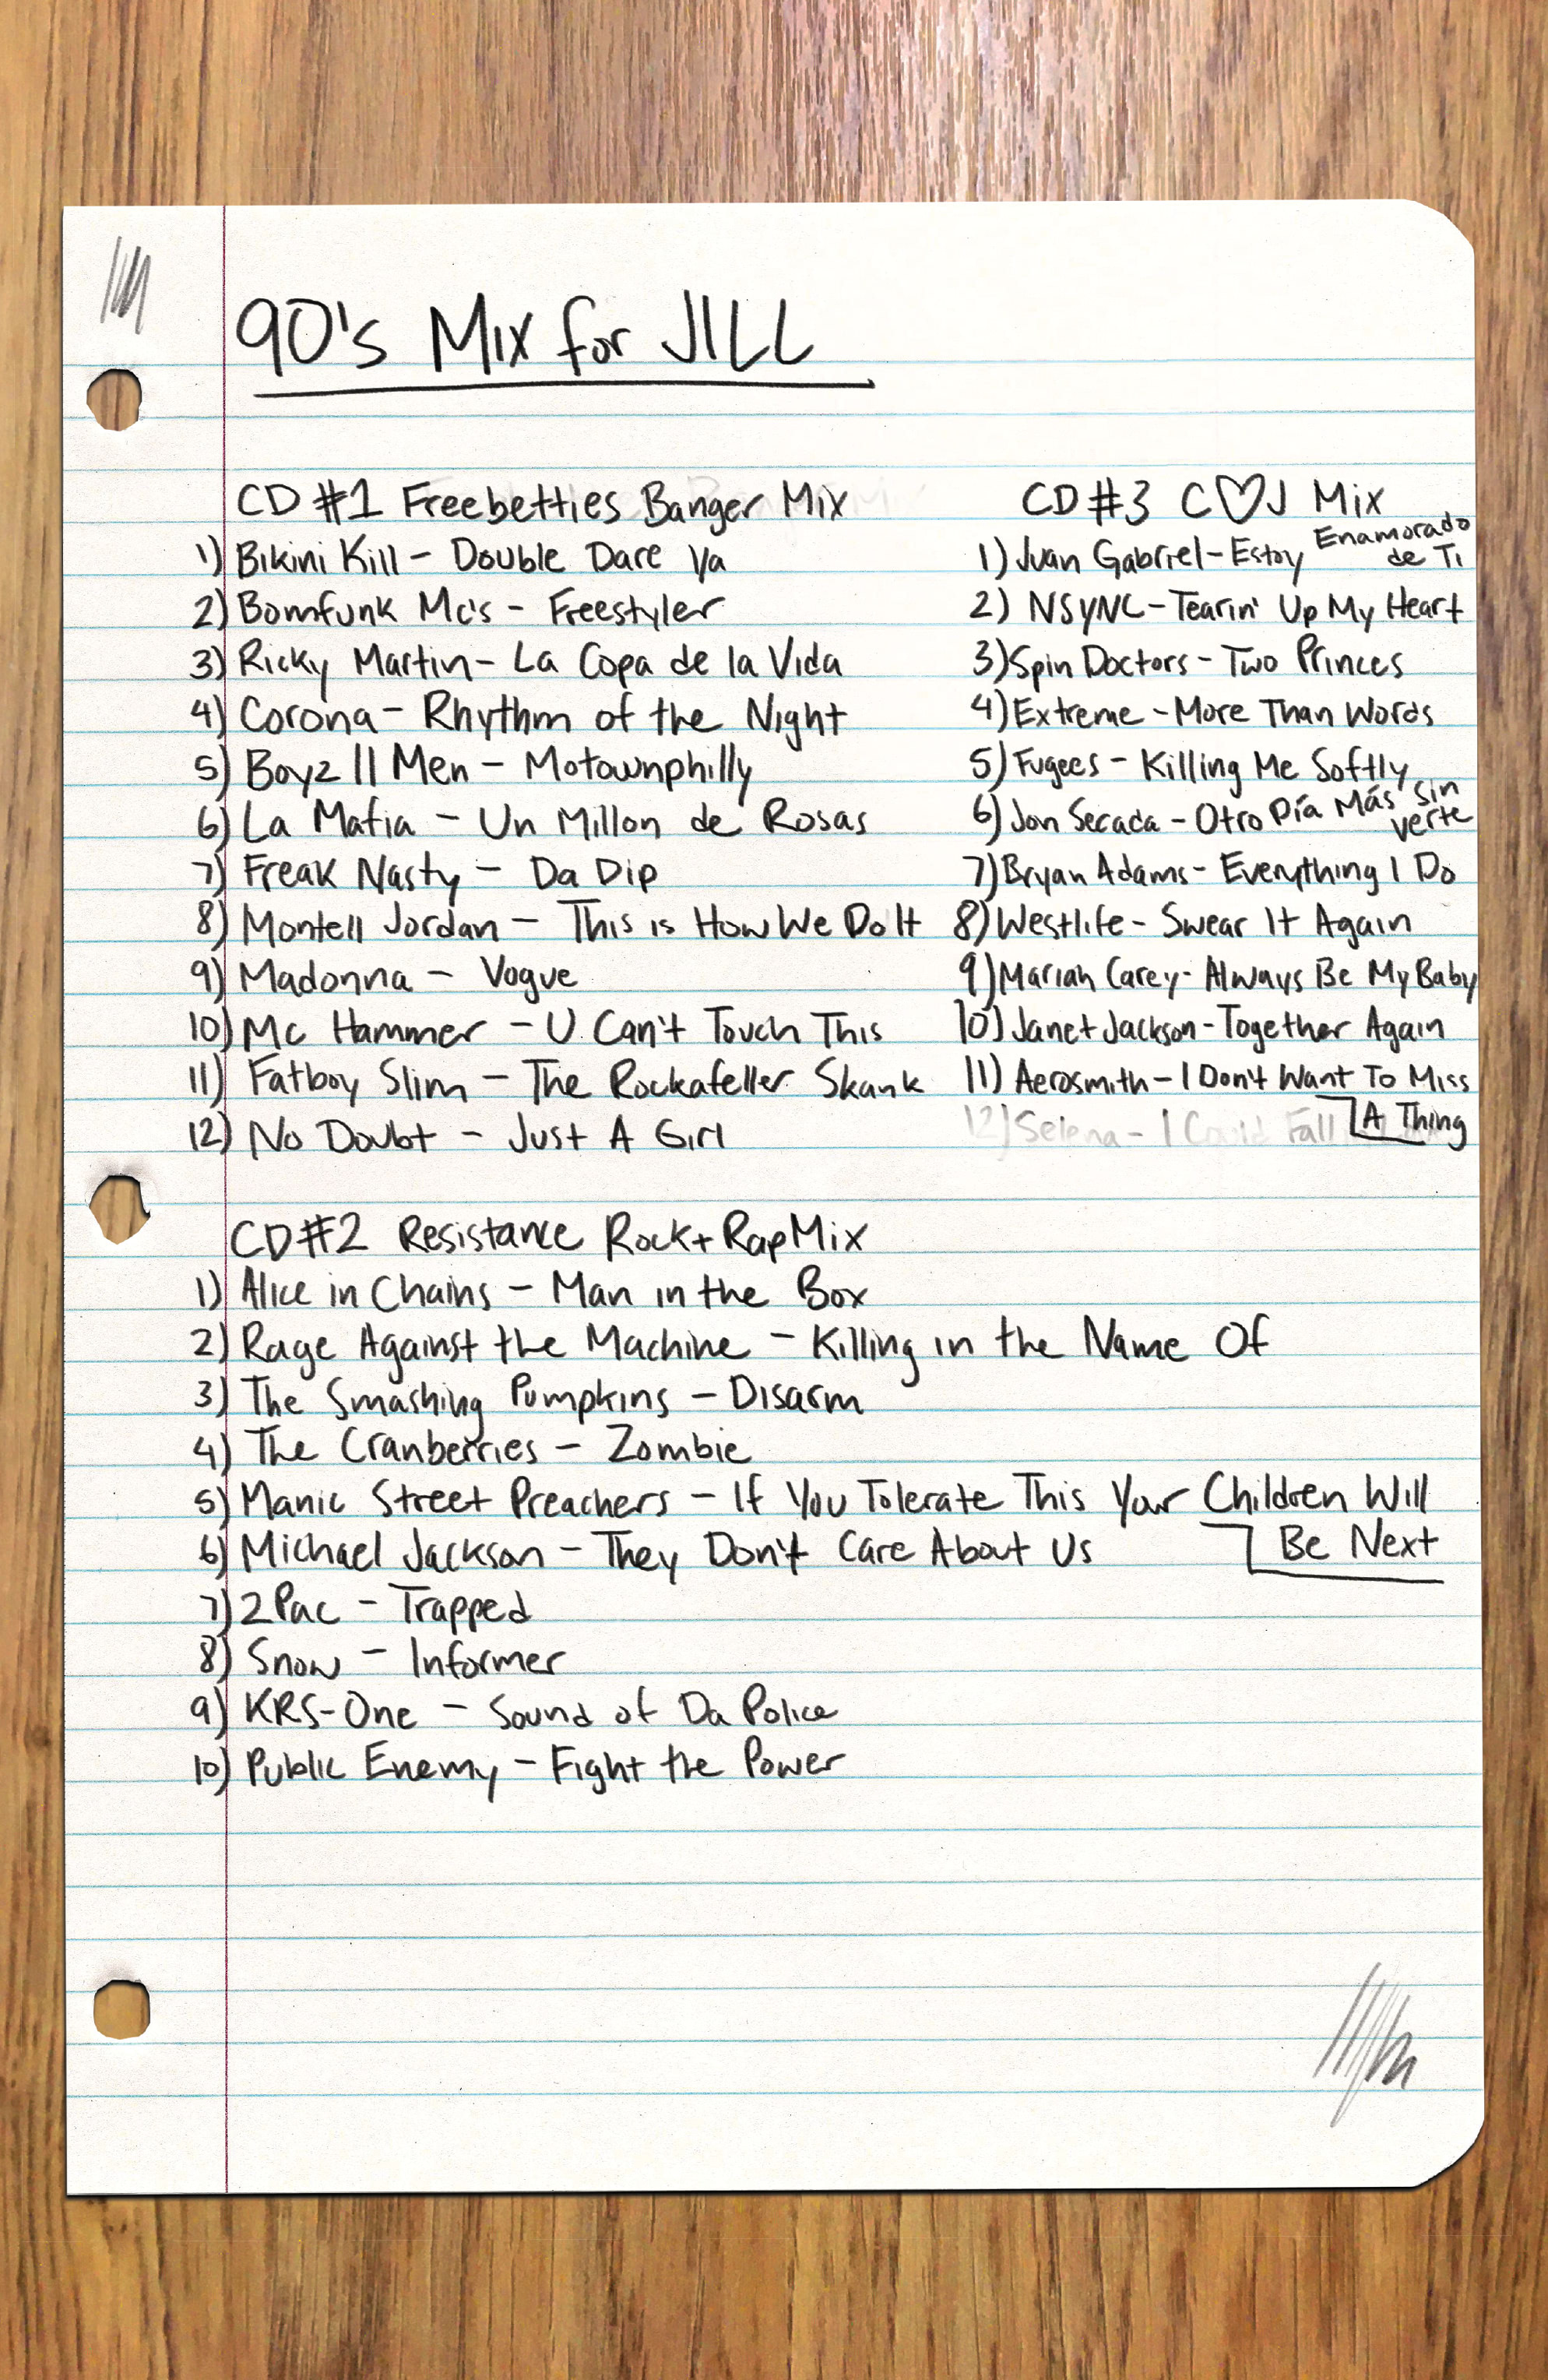 90's Mix for JILL
CD #1 Freebetties Banger Mix
1) Bikini Kill - Double Dare Ya
2) Bomfunk Mc's - Freestyler
3) Ricky Martin - La Copa de la Vida
4) Corona - Rhythm of the Night
5) Boyz II Men - Motownphilly
6) La Mafia - Un Millon de Rosas
7) Freak Nasty - Da Dip
8) Montell Jordan - This is How We Do It
9) Madonna - Vogue
10) Mc Hammer - U Can't Touch This
11) Fatboy Slim - The Rockafeller Skank
12) No Doubt - Just A Girl
CD #3 C♡J Mix
1) Juan Gabriel - Estoy Enamorado
de Ti
2) NSYNC - Tearin' Up My Heart
3) Spin Doctors - Two Princes
4) Extreme - More Than Words
5) Fugees - Killing Me Softly
6) Jon Secada - Otro Día Más Sin
verte
7) Bryan Adams - Everything I Do
8) Westlife - Swear It Again
9) Mariah Carey - Always Be My Baby
10) Janet Jackson - Together Again
11) Aerosmith - I Don't Want To Miss
A Thing
12) Selena - I Could Fall
CD #2 Resistance Rock + Rap Mix
1) Alice in Chains - Man in the Box
2) Rage Against the Machine - Killing in the Name Of
3) The Smashing Pumpkins - Disarm
4) The Cranberries - Zombie
5) Manic Street Preachers - If You Tolerate This Your Children Will
Be Next
6) Michael Jackson - They Don't Care About Us
7) 2Pac - Trapped
8) Snow - Informer
9) KRS-One - Sound of Da Police
10) Public Enemy - Fight the Power